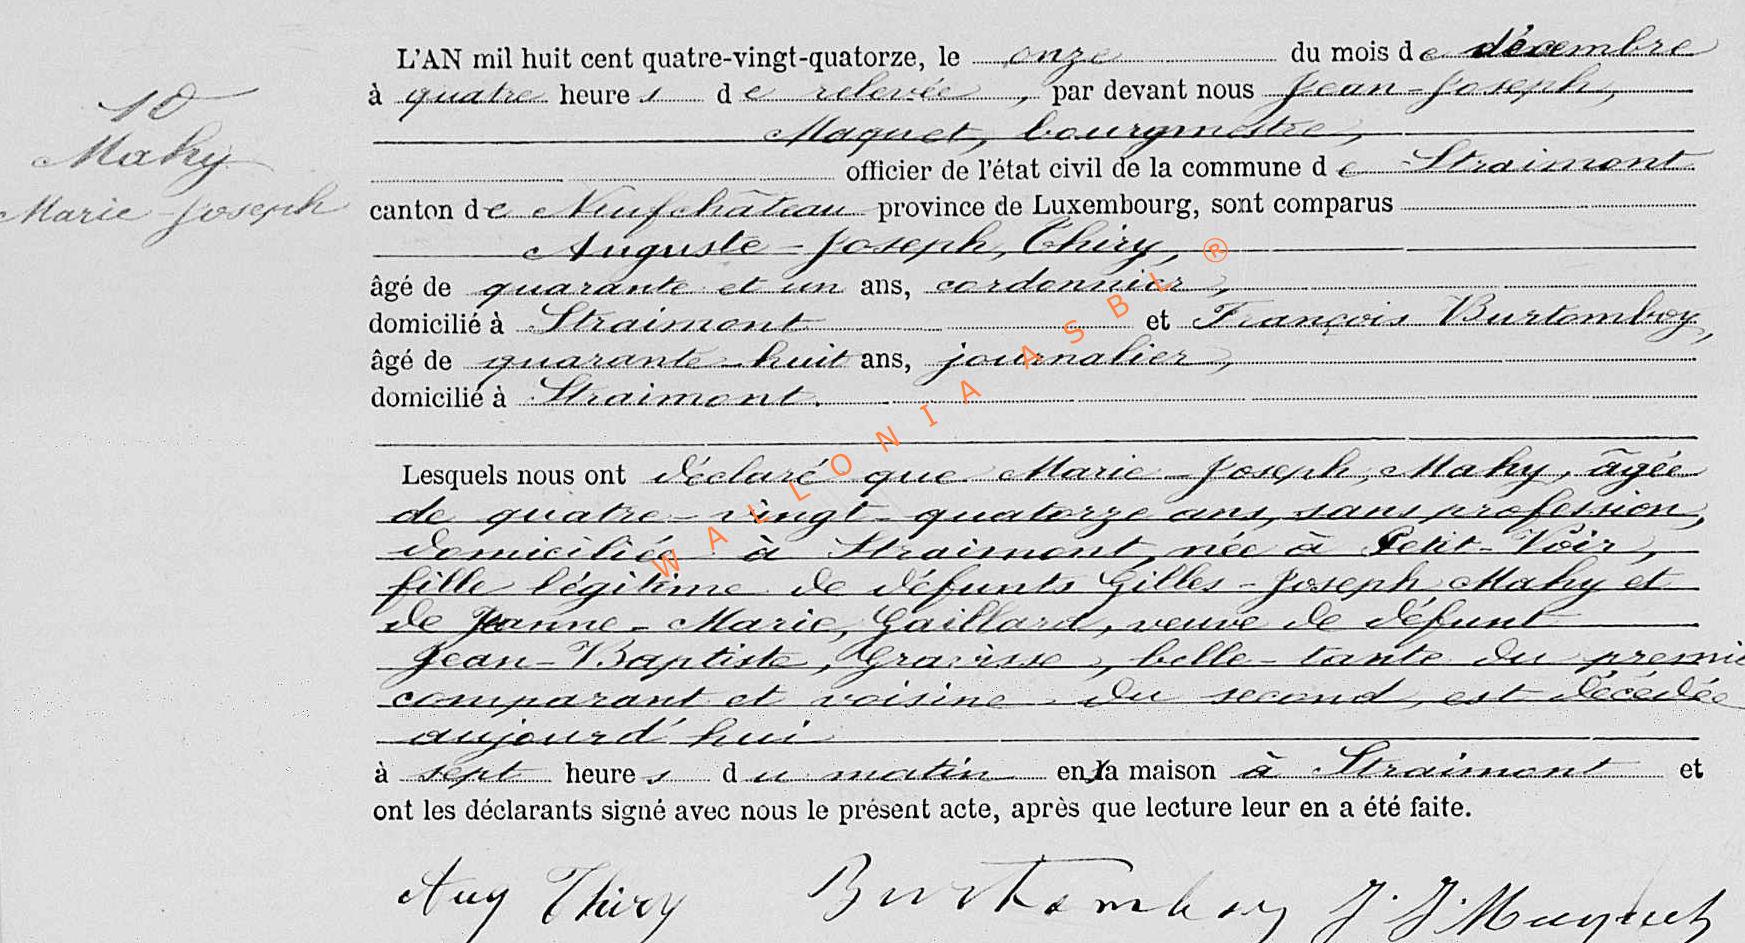 L'AN mil huit cent quatre-vingt-quatorze, le onze du mois de décembre
à quatre heures de relevée, par devant nous Jean-Joseph,
Maquet, bourgmestre,
officier de l'état civil de la commune de Straimont
canton de Neufchâteau province de Luxembourg, sont comparus
Auguste-Joseph, Thiry,
âgé de quarante et un ans, cordonnier,
domicilié à Straimont et François Burtomboy,
âgé de quarante-huit ans, journalier,
domicilié à Straimont.
10
Mahy
Marie-Joseph
Lesquels nous ont déclaré que Marie-Joseph, Mahy, âgée
de quatre-vingt-quatorze ans, sans profession,
domiciliée à Straimont, née à Petit-Voir,
fille légitime de défunts Gilles-Joseph Mahy et
de Jeanne-Marie, Gaillard, veuve de défunt
Jean-Baptiste, , belle-tante du premie
comparant et voisine du second, est décédée
aujourd'hui
à sept heures du matin en sa maison à Straimont et
ont les déclarants signé avec nous le présent acte, après que lecture leur en a été faite.
Aug Thiry Burtomboy J. J. Maquet
WALLONIA ASBL ®